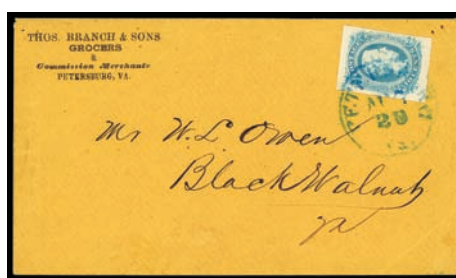 THOS. BRANCH & SONS
GROCERS
&
Commission Merchants
PETERSBURG, VA.
Mr W. L Owen
Black Walnut
Va
29